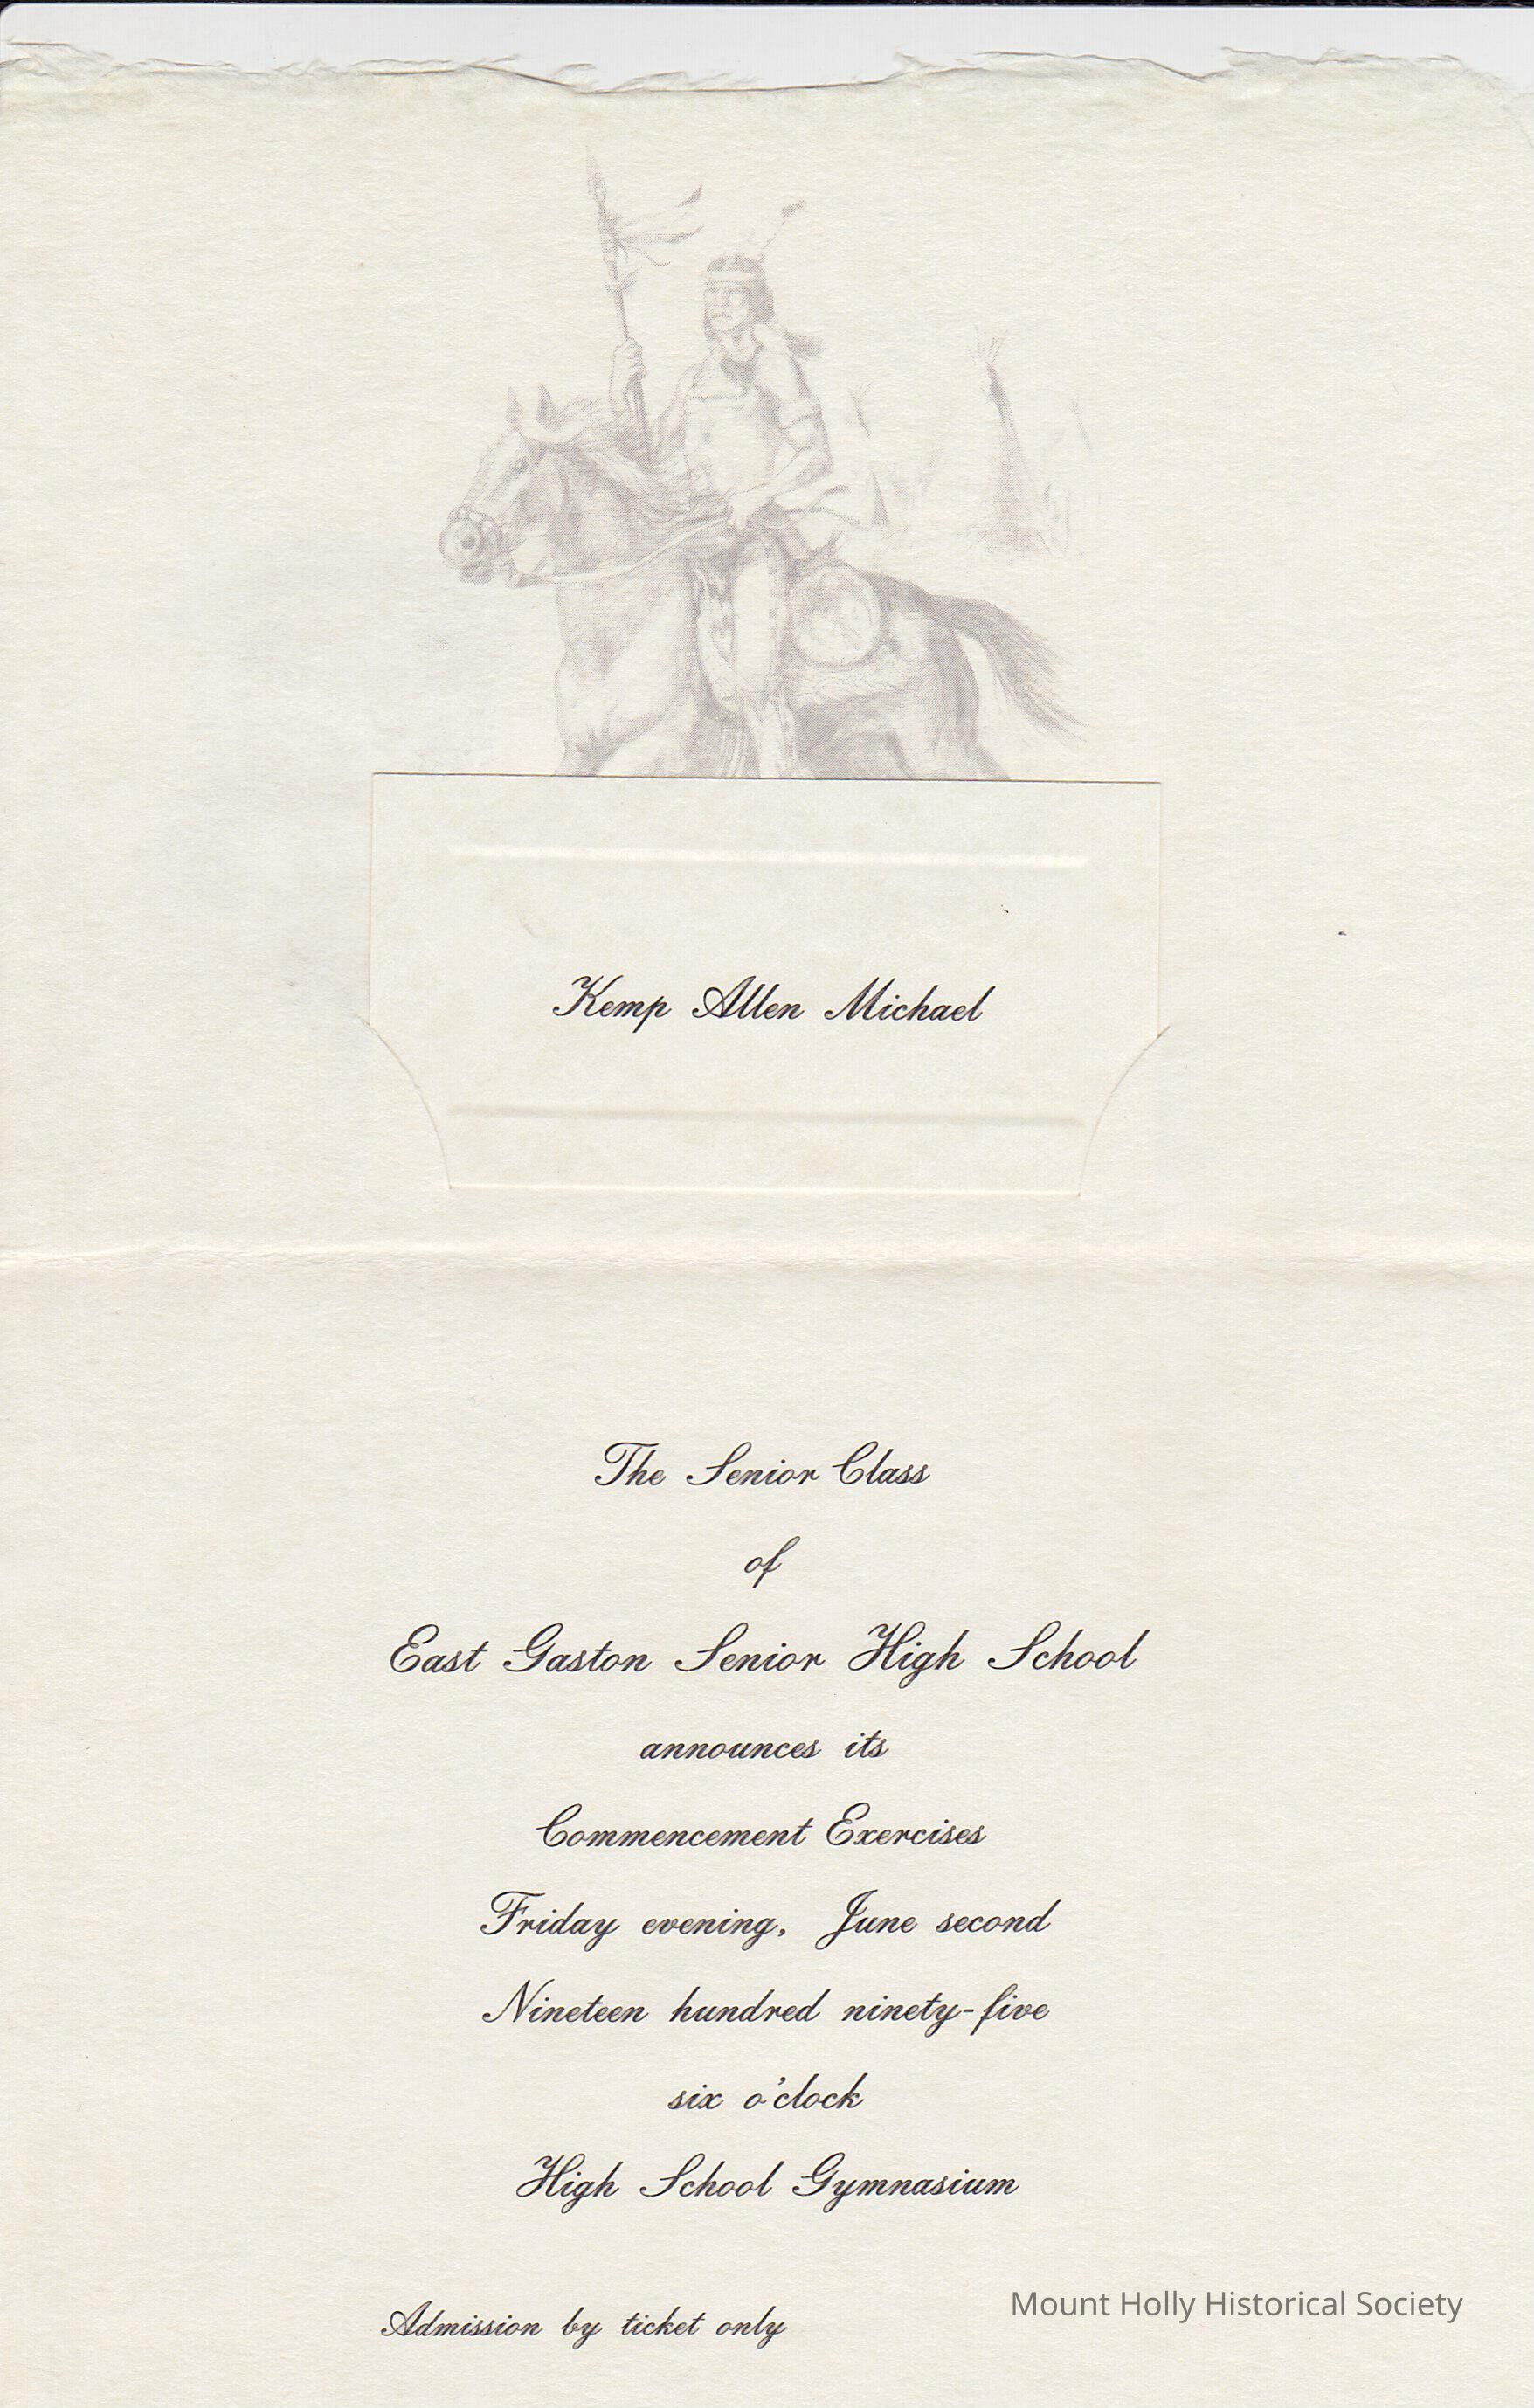 Kemp Allen Michael
The Senior Class
of
East Gaston Senior High School
announces its
Commencement Exercises
Friday evening, June second
Nineteen hundred ninety-five
six o'clock
High School Gymnasium
Admission by ticket only
Mount Holly Historical Society